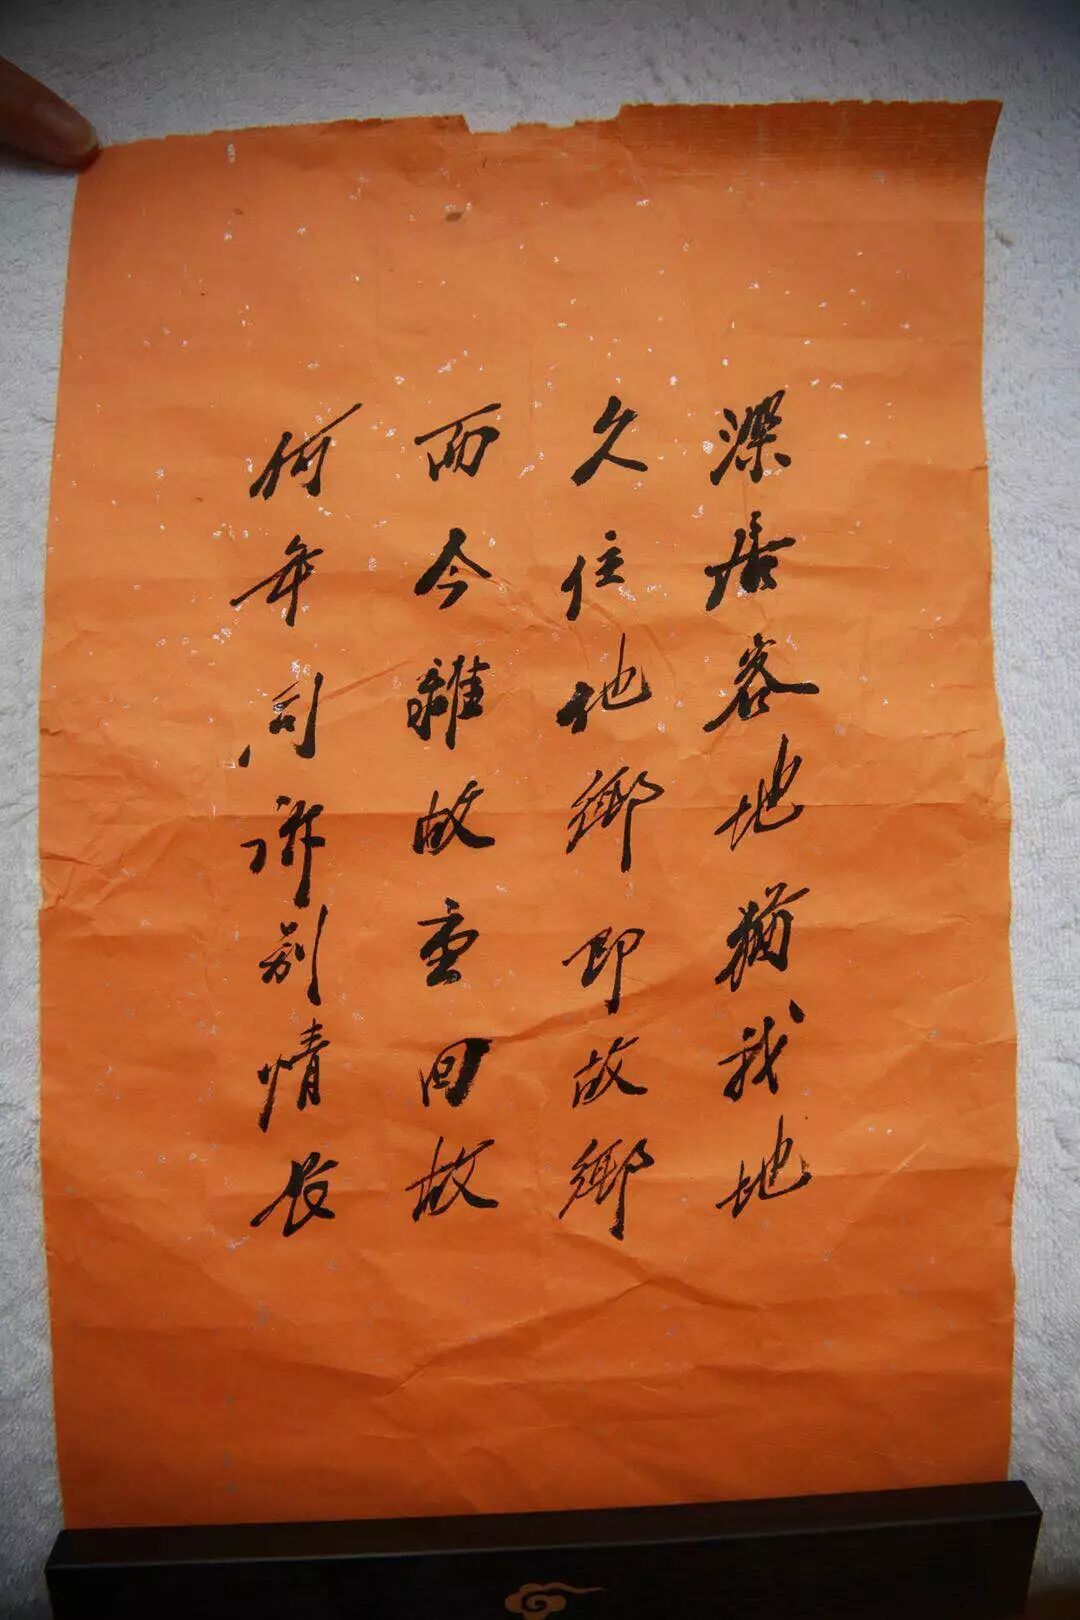 深居客地猶我地
久住他鄉即故鄉
而今離故重回故
何年同訴別情長